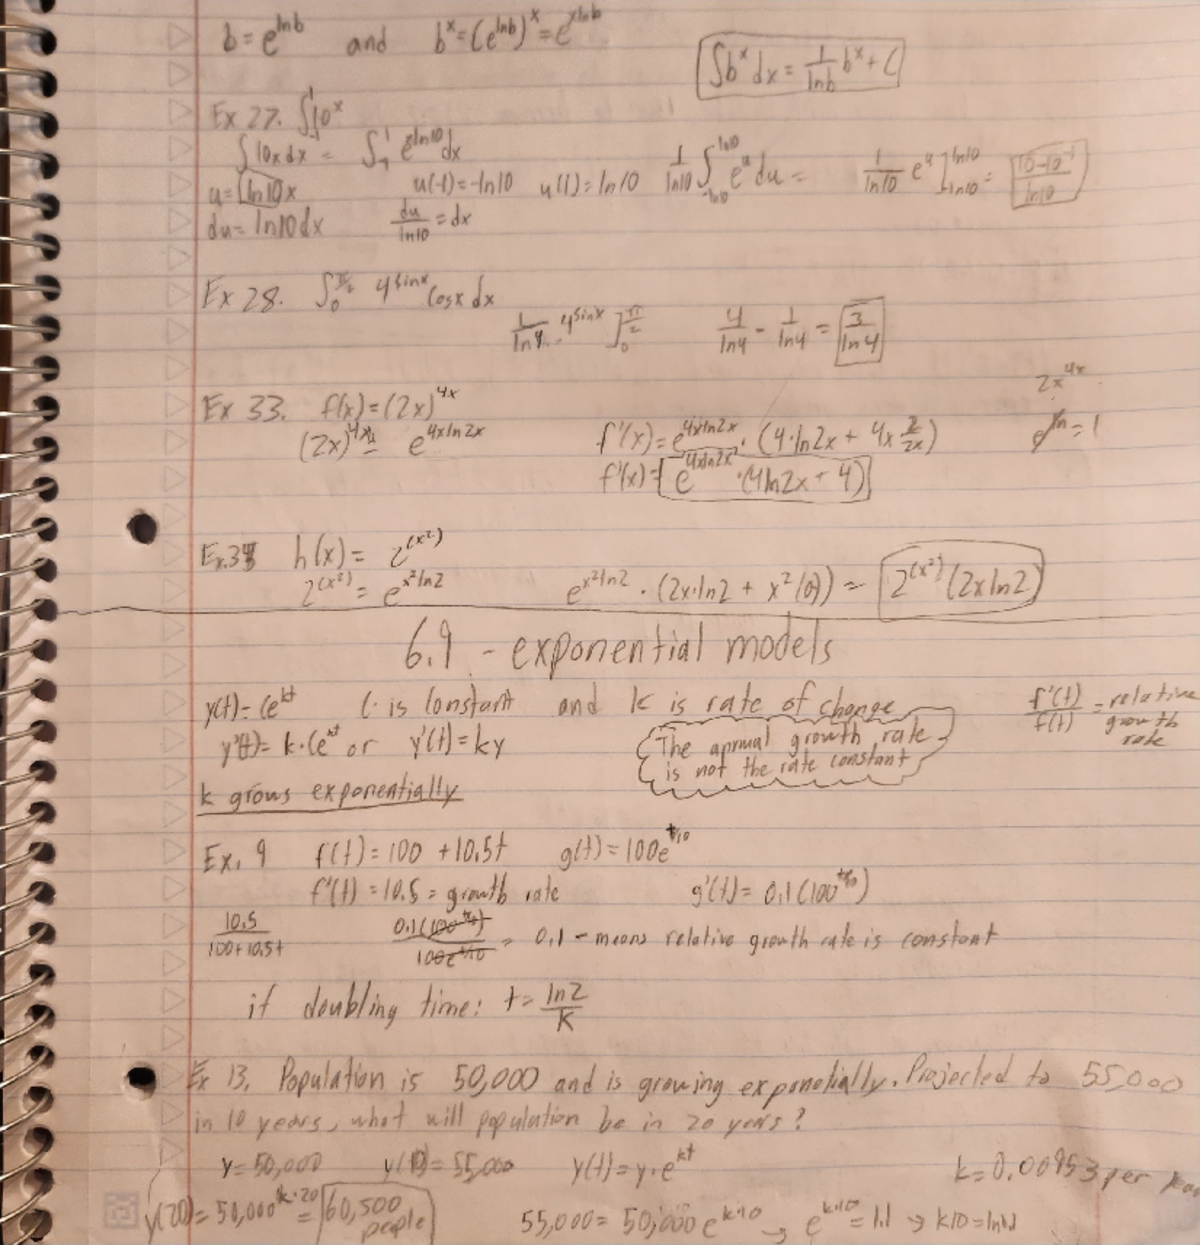 b = e^{lnb} and b^x = (e^{lnb})^x = e^{xlnb}
∫b^x dx = 1/lnb b^x + C
Ex 27. ∫_{-1}^1 10^x
∫10x dx = ∫_{-1}^1 e^{xln10} dx
u = ln10x u(-1) = -ln10 u(1) = ln10 1/ln10 ∫_{-ln10}^{ln10} e^u du = 1/ln10 e^u]_{-ln10}^{ln10} = 10-10^{-1}/ln10
du = ln10dx du/ln10 = dx
Ex 28. ∫_0^{π/2} 4^{sinx} cosx dx
1/ln4 · 4^{sinx}]_0^{π/2} 4/ln4 - 1/ln4 = 3/ln4
2x^{4x}
Ex 33. f(x) = (2x)^{4x}
(2x)^{4x} = e^{4xln2x} f'(x) = e^{4xln2x} · (4·ln2x + 4x 2/2x) e^{ln} = 1
f'(x) = e^{4xln2x} · (4ln2x + 4)
Ex.35 h(x) = 2^{(x²)}
2^{(x²)} = e^{x²ln2} e^{x²ln2} · (2x·ln2 + x²(0)) = 2^{(x²)} (2xln2)
6.9 - exponential models
y(t) = Ce^{kt} C is constant and k is rate of change f'(t)/f(t) = relative growth rate
y'(t) = k·Ce^{kt} or y'(t) = ky
The annual growth rate
is not the rate constant
k grows exponentially
Ex. 9 f(t) = 100 + 10.5t g(t) = 100e^{t/10}
f'(t) = 10.5 = growth rate g'(t) = 0.1(100^{t/10})
10.5/100+10.5t 0.1(100^{t/10})/100e^{t/10} = 0.1 - means relative growth rate is constant
if doubling time: t = ln2/k
Ex 13. Population is 50,000 and is growing exponetially. Projected to 55,000
in 10 years, what will population be in 20 years?
y = 50,000 y(10) = 55,000 y(t) = y·e^{kt} k = 0.00953 per year
y(20) = 50,000^{k·20} = 60,500 people 55,000 = 50,000e^{k·10} → e^{k·10} = 1.1 → k10 = ln1.1